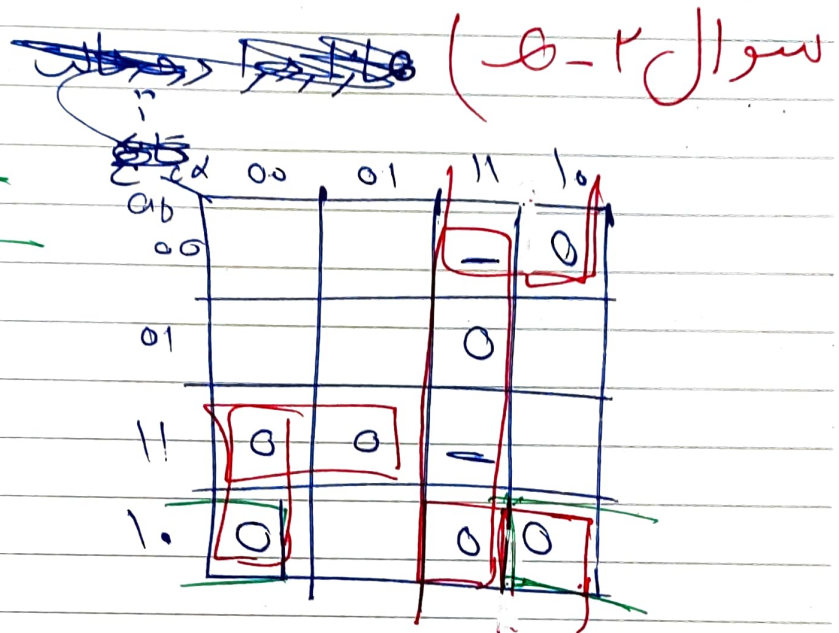 سوال ۲ - ه)
cd 00 01 11 10
ab
00 - 0
01 0
11 0 0 -
10 0 0 0